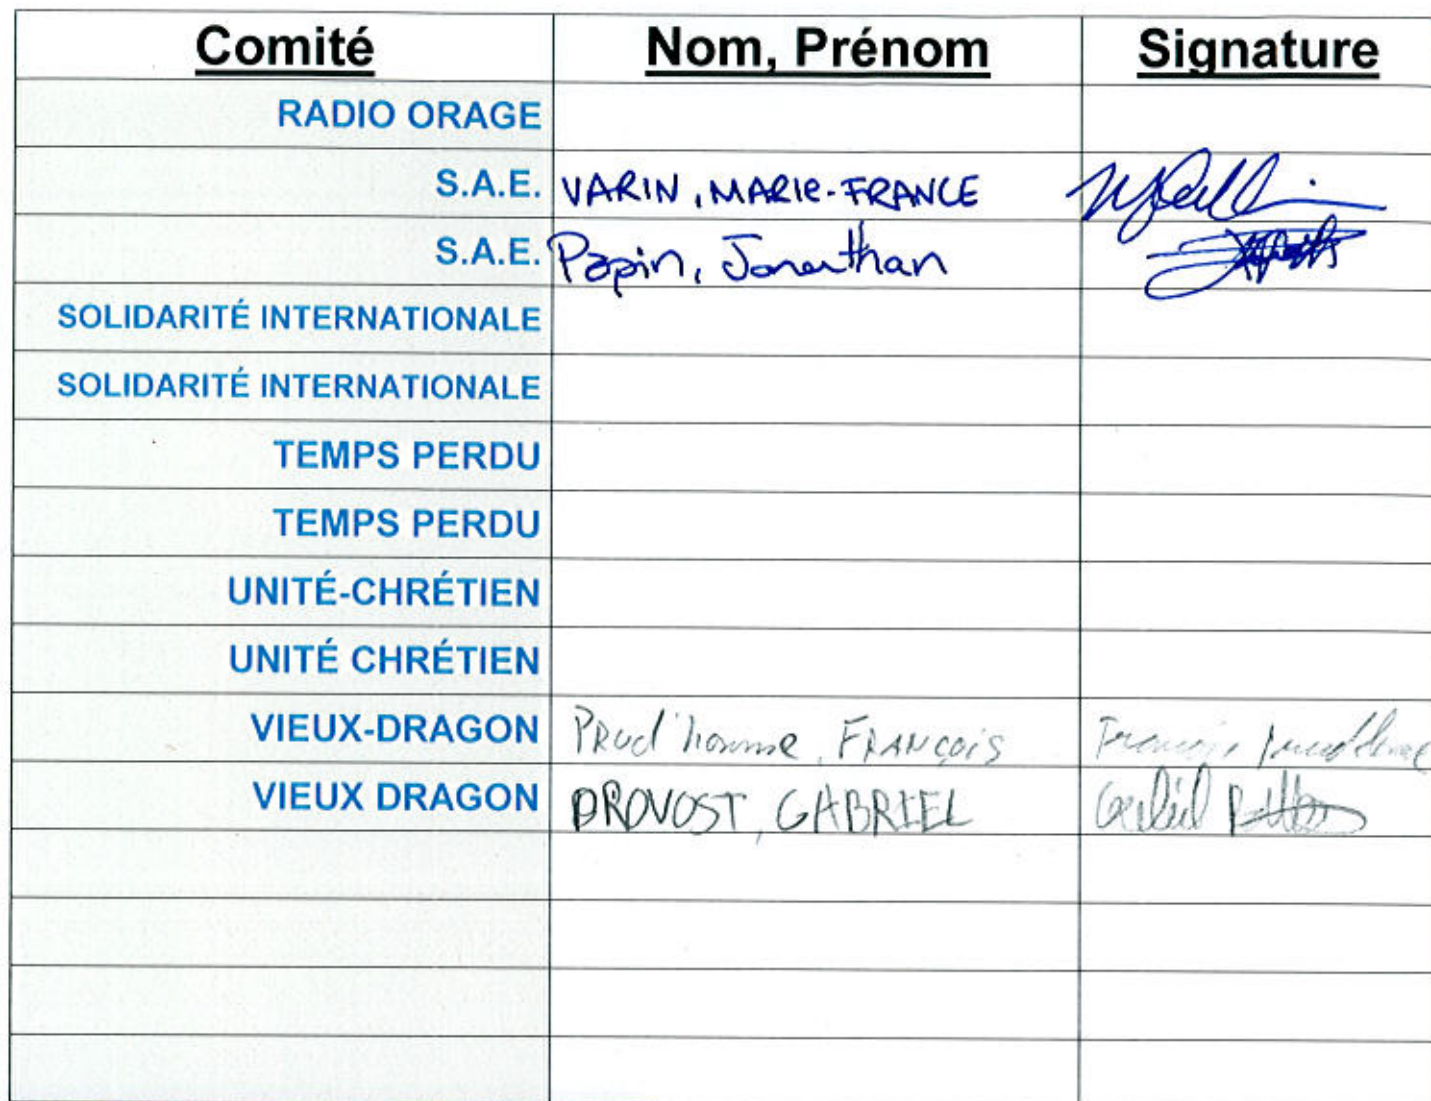 Comité Nom, Prénom Signature
RADIO ORAGE
S.A.E. VARIN, MARIE-FRANCE
S.A.E. Papin, Jonathan
SOLIDARITÉ INTERNATIONALE
SOLIDARITÉ INTERNATIONALE
TEMPS PERDU
TEMPS PERDU
UNITÉ-CHRÉTIEN
UNITÉ CHRÉTIEN
VIEUX-DRAGON Prud'homme, FRANÇOIS François Prud'homme
VIEUX DRAGON PROVOST, GABRIEL Gabriel